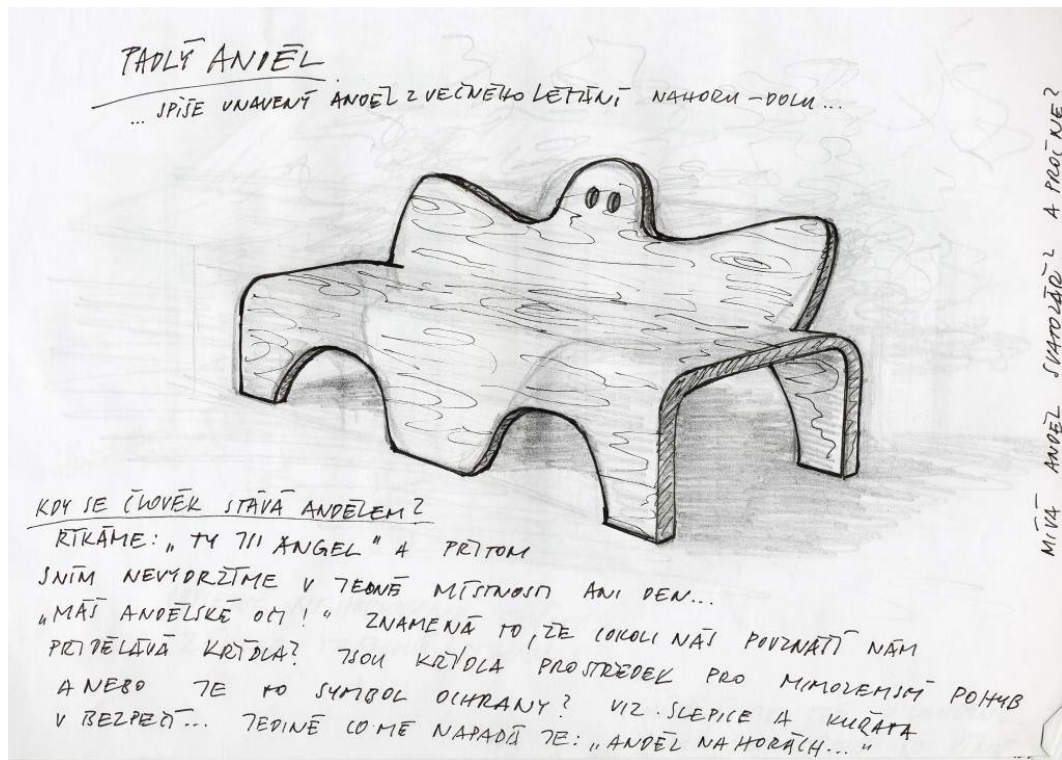 PADLÝ ANDĚL
... SPÍŠE UNAVENÝ ANDĚL Z VEČNÉHO LÉTÁNÍ NAHORU – DOLU...
KDY SE ČLOVĚK STÁVÁ ANDĚLEM?
ŘÍKÁME: „TY JSI ANGEL" A PŘITOM
SNÍM NEVYDRŽÍME V JEDNÉ MÍSTNOSTI ANI DEN...
„MÁŠ ANDĚLSKÉ OČI!" ZNAMENÁ TO, ŽE COKOLI NÁS POVZNÁŠÍ NÁM
PŘIDĚLÁVÁ KŘÍDLA? JSOU KŘÍDLA PROSTŘEDEK PRO MIMOZEMSKÝ POHYB
A NEBO JE TO SYMBOL OCHRANY? VIZ. SLEPICE A KUŘATA
V BEZPEČÍ... JEDINĚ CO MĚ NAPADÁ JE: „ANDĚL NA HORÁCH..."
MÍVÁ ANDĚL SVATOZÁŘ? A PROČ NE?